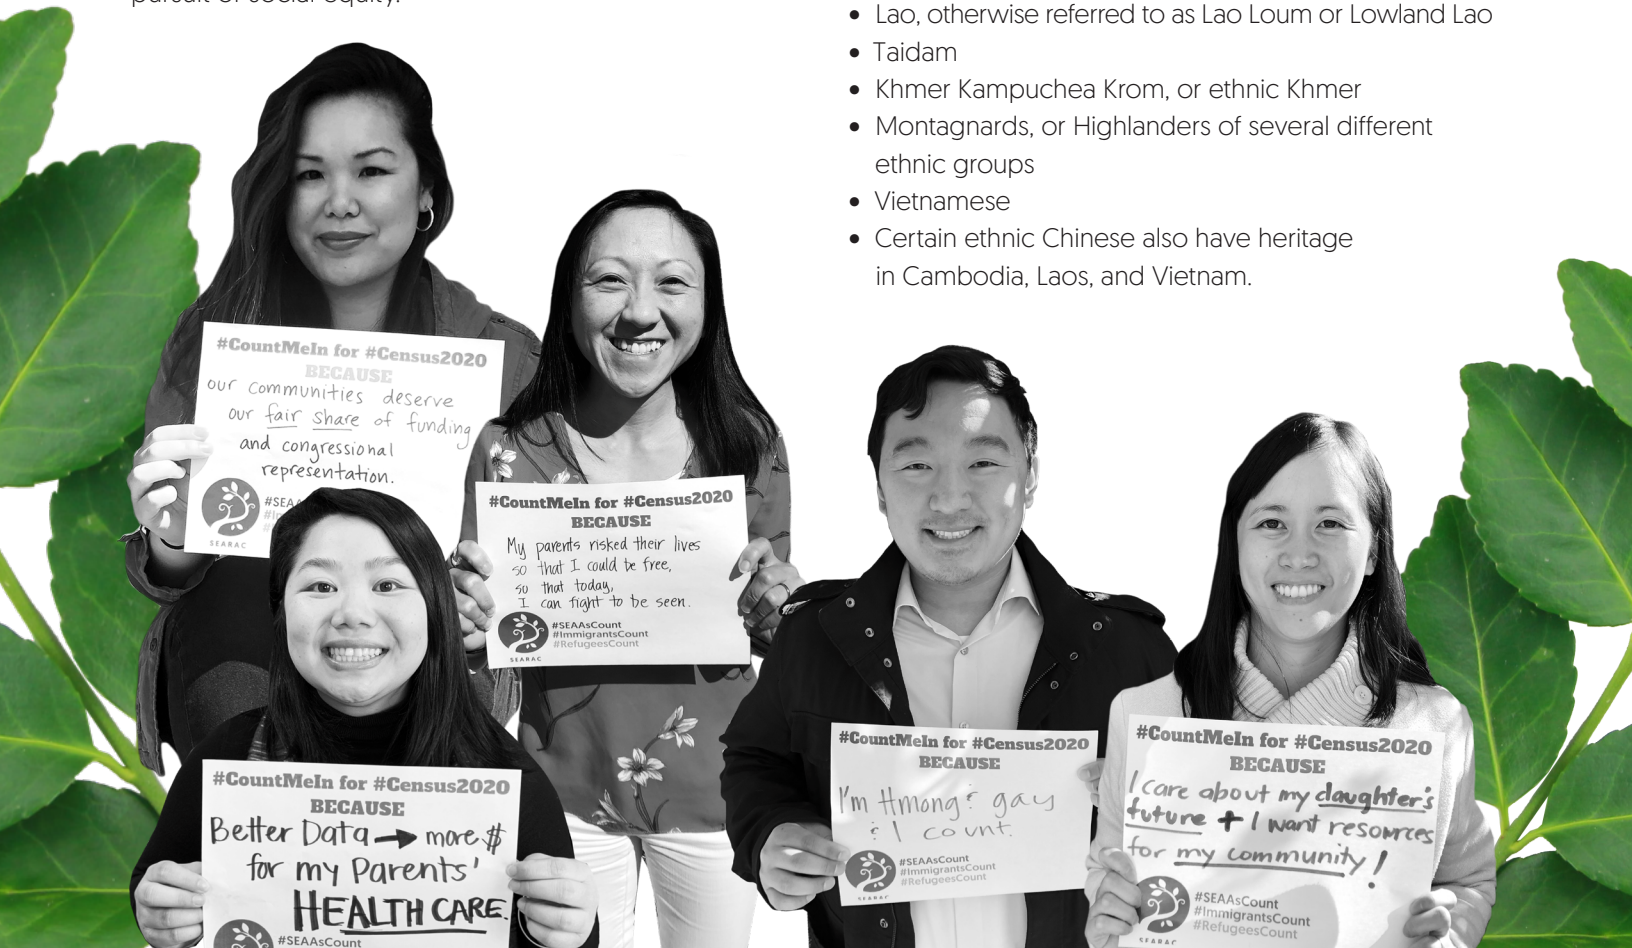 pursuit of social equity.
• Lao, otherwise referred to as Lao Loum or Lowland Lao
• Taidam
• Khmer Kampuchea Krom, or ethnic Khmer
• Montagnards, or Highlanders of several different
ethnic groups
• Vietnamese
• Certain ethnic Chinese also have heritage
in Cambodia, Laos, and Vietnam.
#CountMeIn for #Census2020
BECAUSE
our communities deserve
our fair share of funding
and congressional
representation.
SEARAC
#CountMeIn for #Census2020
BECAUSE
My parents risked their lives
so that I could be free,
so that today,
I can fight to be seen.
#SEAAsCount
#ImmigrantsCount
#RefugeesCount
SEARAC
#CountMeIn for #Census2020
BECAUSE
Better Data → more $
for my Parents'
HEALTH CARE.
#SEAAsCount
#CountMeIn for #Census2020
BECAUSE
I'm Hmong & gay
& I count.
#SEAAsCount
#ImmigrantsCount
#RefugeesCount
SEARAC
#CountMeIn for #Census2020
BECAUSE
I care about my daughter's
future + I want resources
for my community!
#SEAAsCount
#ImmigrantsCount
#RefugeesCount
SEARAC